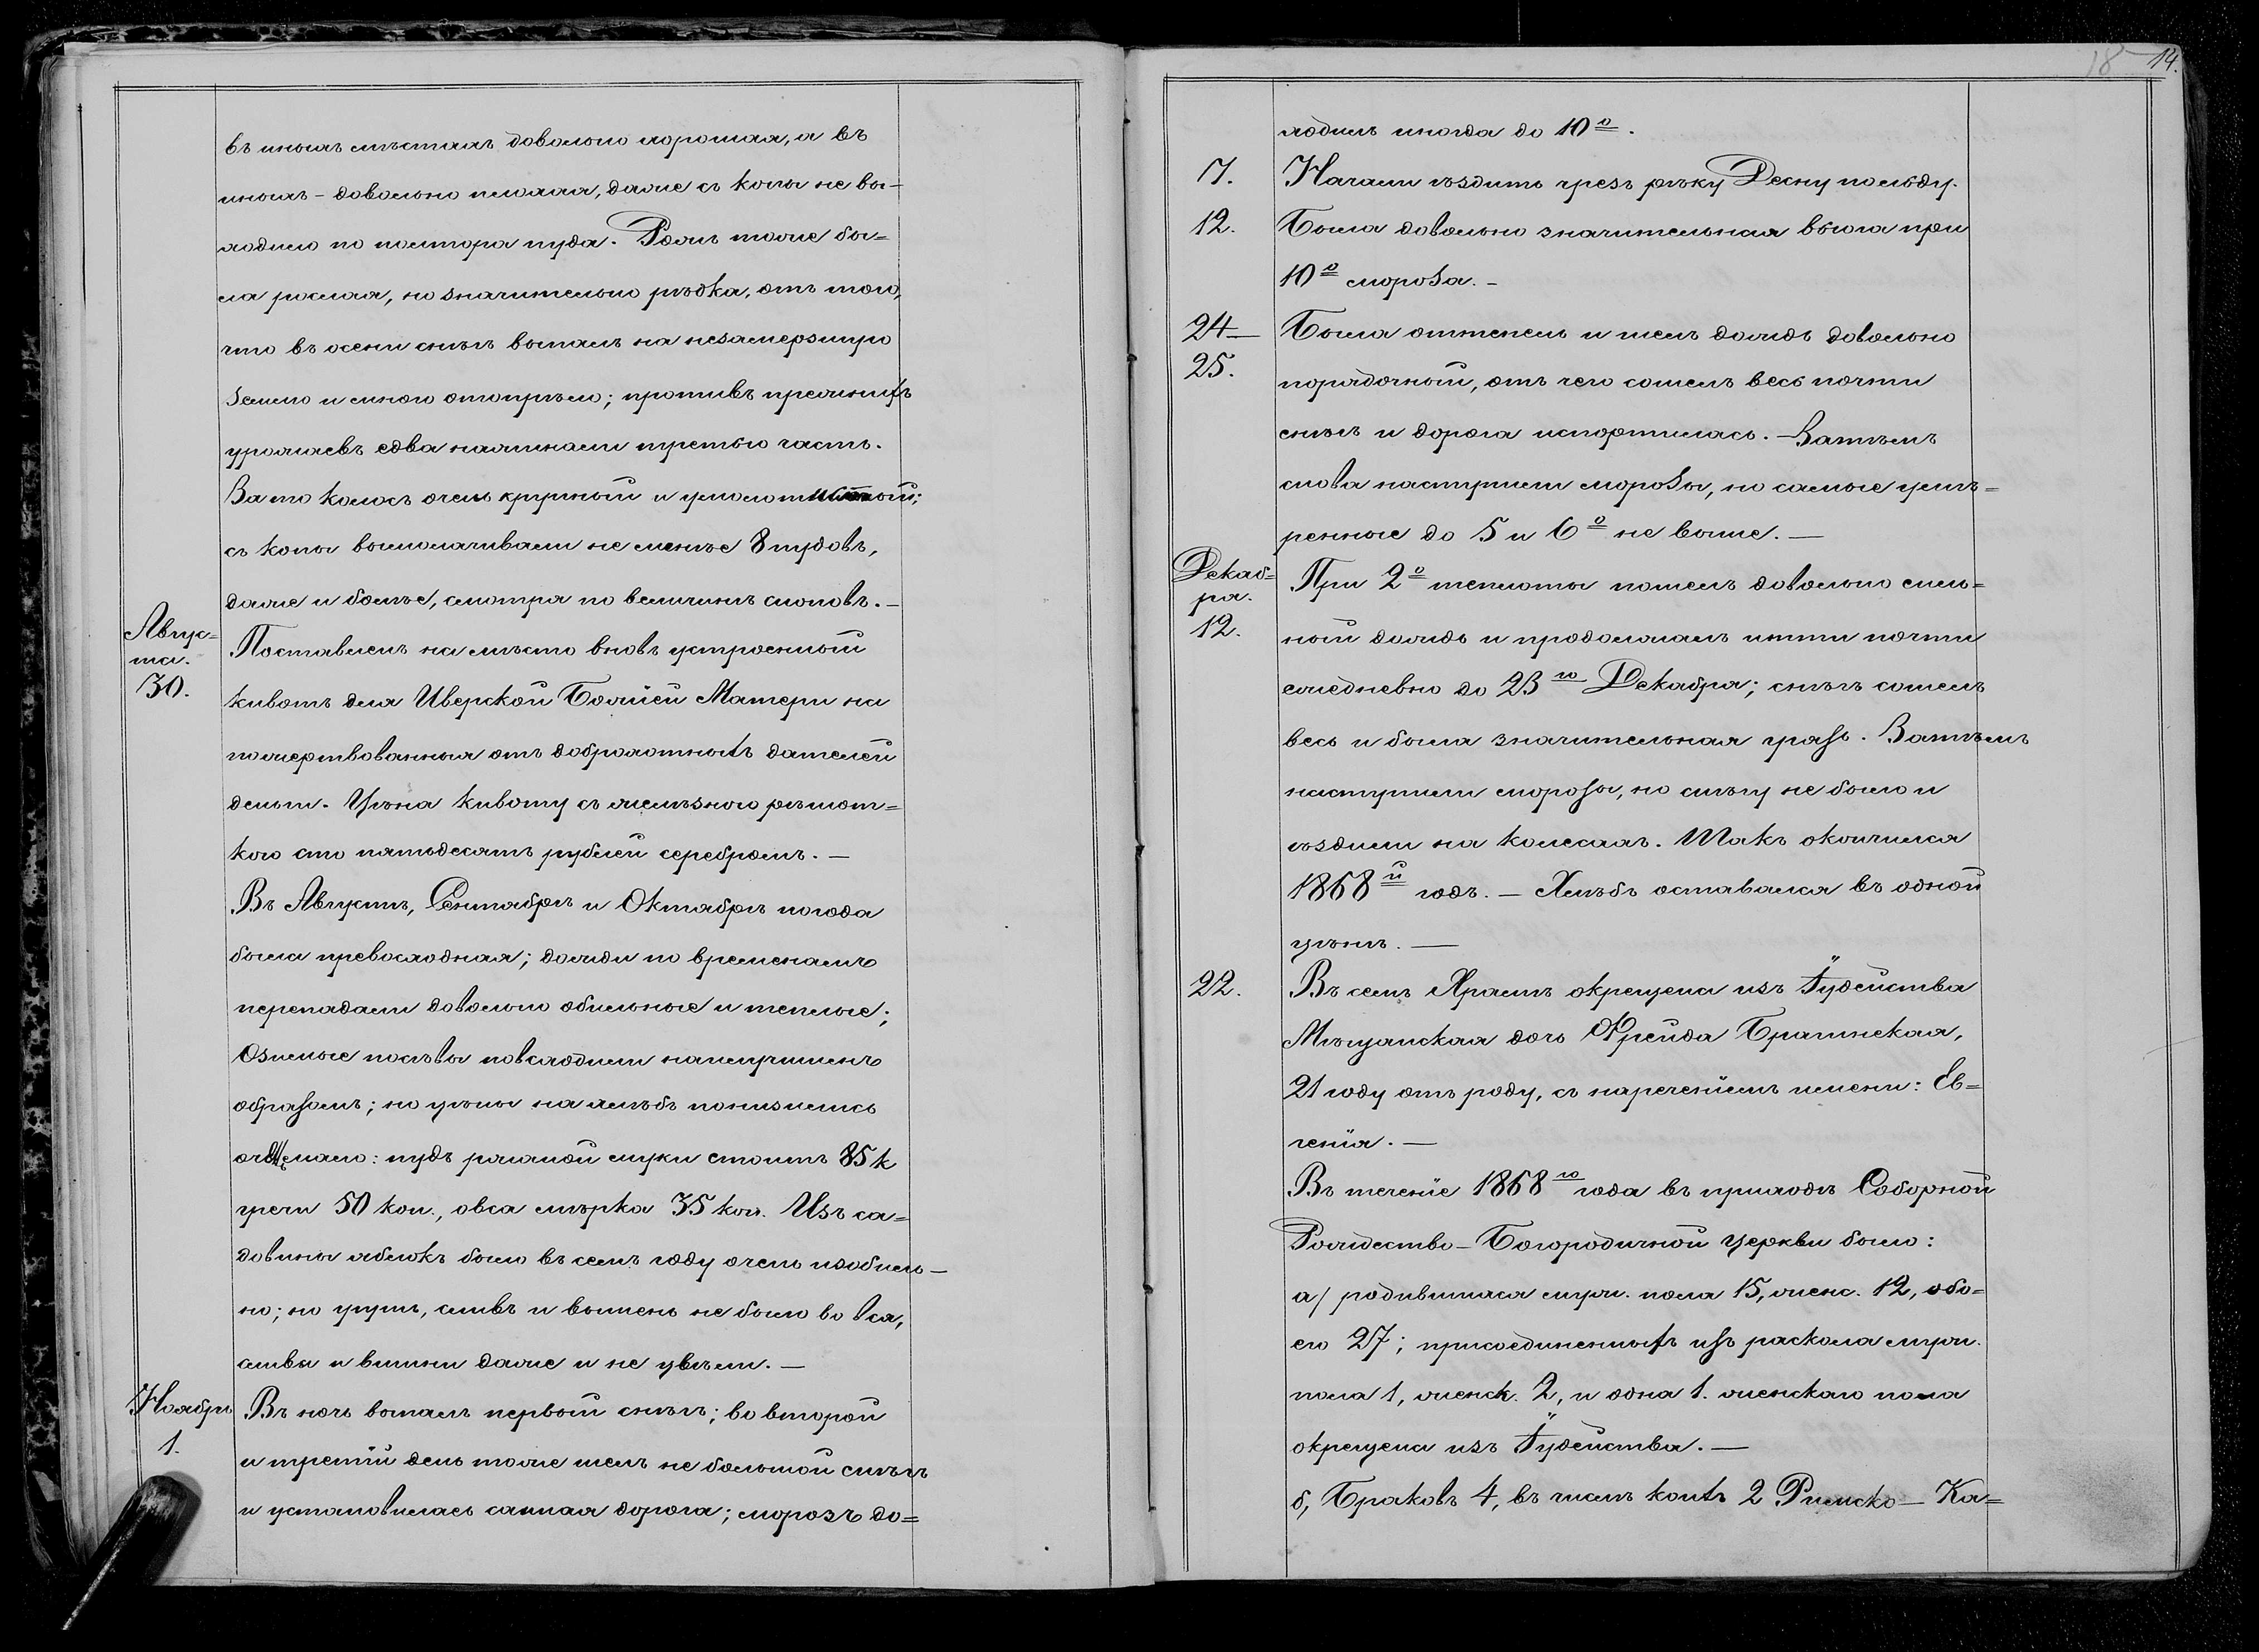 въ иныхъ мѣстахъ довольно хорошая, а въ
иныхъ - довольно плохая, даже съ копы не вы-
ходило по полтора пуда. Рожь тоже бы=
ла рослая, но значительно рѣдка, отъ того,
что въ осени снѣгъ выпалъ на незамерзшую
землю и много отопрѣло; противъ прежнихъ
урожаевъ едва нажинали третью часть.
За то колосъ очень крупный и умолотистый;
съ копы вымолачивали не менѣе 8 пудовъ,
даже и болѣе, смотря по величинѣ сноповъ. —
Авгус=
та.
30.
Поставленъ на мѣсто вновь устроенный
кивотъ для Иверской Божіей Матери на
пожертвованныя отъ доброхотныхъ дателей
деньги. Цѣна кивоту съ желѣзною рѣшот=
кою сто пятьдесятъ рублей серебромъ. —
Въ Августѣ, Сентябрѣ и Октябрѣ погода
была превосходная; дожди по временамъ
перепадали довольно обильные и теплые;
Озимые посѣвы повсходили наилучшимъ
образомъ; но цѣны на хлѣбъ понизились
очень мало: пудъ ржаной муки стоитъ 85 к
гречи 50 коп., овса мѣрка 35 коп. Изъ са=
довины яблокъ было въ семъ году очень изобиль—
но; но грушъ, сливъ и вышень не было во вся,
сливы и вишни даже и не цвѣли. —
Ноября
1.
Въ ночь выпалъ первый снѣгъ; во второй
и третій день тоже шелъ не большой снѣгъ
и установилась санная дорога; морозъ до=
18 14.
ходилъ иногда до 10º.
7.
Начали ѣздить чрезъ рѣку Десну по льду.
12.
Была довольно значительная вьюга при
10º мороза. —
24—
25.
Была оттепель и шелъ дождь довольно
порядочный, отъ чего сошелъ весь почти
снѣгъ и дорога испортилась. — Затѣмъ
снова наступили морозы, но самые умѣ=
ренные до 5 и 6º не выше. —
Декаб=
ря.
12.
При 2º теплоты пошелъ довольно силь=
ный дождь и продолжалъ итти почти
ежедневно до 23го Декабря; снѣгъ сошелъ
весь и была значительная грязь. Затѣмъ
наступили морозы, но снѣгу не было и
ѣздили на колесахъ. Такъ окончился
1868й годъ. — Хлѣбъ оставался въ одной
цѣнѣ. —
22.
Въ семъ Храмѣ окрещена изъ Іудейства
Мѣщанская дочь Фрейда Брагинская,
21 году отъ роду, съ нареченіемъ имени: Ев=
генія. —
Въ теченіе 1868го года въ приходѣ Соборной
Рождество-Богородичной церкви было:
а/ родившихся муж. пола 15, женс. 12, обо=
его 27; присоединенныхъ изъ раскола муж.
пола 1, женск. 2, и одна 1. женскаго пола
окрещена изъ Іудейства. —
б, Браковъ 4, въ числѣ коихъ 2 Римско — Ка=